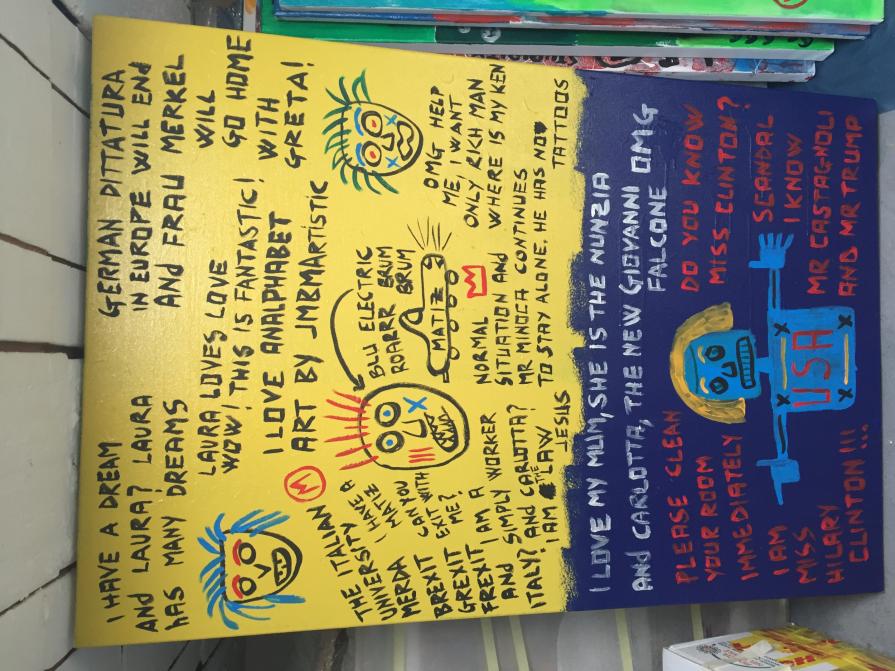 I HAVE A DREAM
AND LAURA? LAURA
HAS MANY DREAMS
GERMAN DITTATURA
IN EUROPE WILL END
AND FRAU MERKEL
WILL
GO HOME
WITH
GRETA!
LAURA LOVES LOVE
WOW! THIS IS FANTASTIC!
I LOVE ANALPHABET
ART BY JMBMARTISTIC
THE ITALIAN
UNIVERSITY
MERDA
BREXIT
GREXIT
FREXIT
I HAVE A
MATIZ
CAN YOU
EXIT WITH
ME?
I AM A
AND SIMPLY WORKER
ITALY? AND CARLOTTA?
I AM THE LAW
JESUS
BLU ELECTRIC
ROARRR BRUM
BRUM
MATIZ
NORMAL
SITUATION AND
MR MINOCA CONTINUES
TO STAY ALONE. HE HAS NO
TATTOOS
OMG HELP
ME, I WANT
ONLY RICH MAN
WHERE IS MY KEN
I LOVE MY MUM, SHE IS THE NUNZIA
AND CARLOTTA, THE NEW GIOVANNI
FALCONE OMG
PLEASE CLEAN
YOUR ROOM
IMMEDIATELY
I AM
MISS
HILARY
CLINTON!!!
USA
DO YOU KNOW
MISS CLINTON?
SCANDAL
I KNOW
MR CASTAGNOLI
AND MR TRUMP